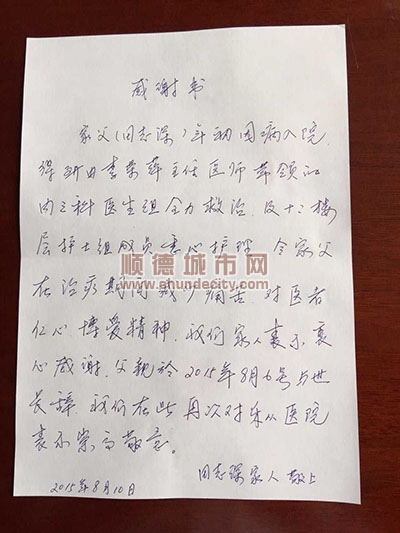 感谢书
家父(周志深)年初因病入院,
得到由李荣萍主任医师带领的
内三科医生组全力救治,及十二楼
层护士组成员悉心护理,令家父
在治疗期间减少痛苦,对医者
仁心博爱精神,我们家人表示衷
心感谢,父亲於2015年8月6号与世
长辞,我们在此再次对乐从医院
表示崇高敬意。
周志深家人 敬上
2015年8月10日
顺德城市网
www.shundecity.com